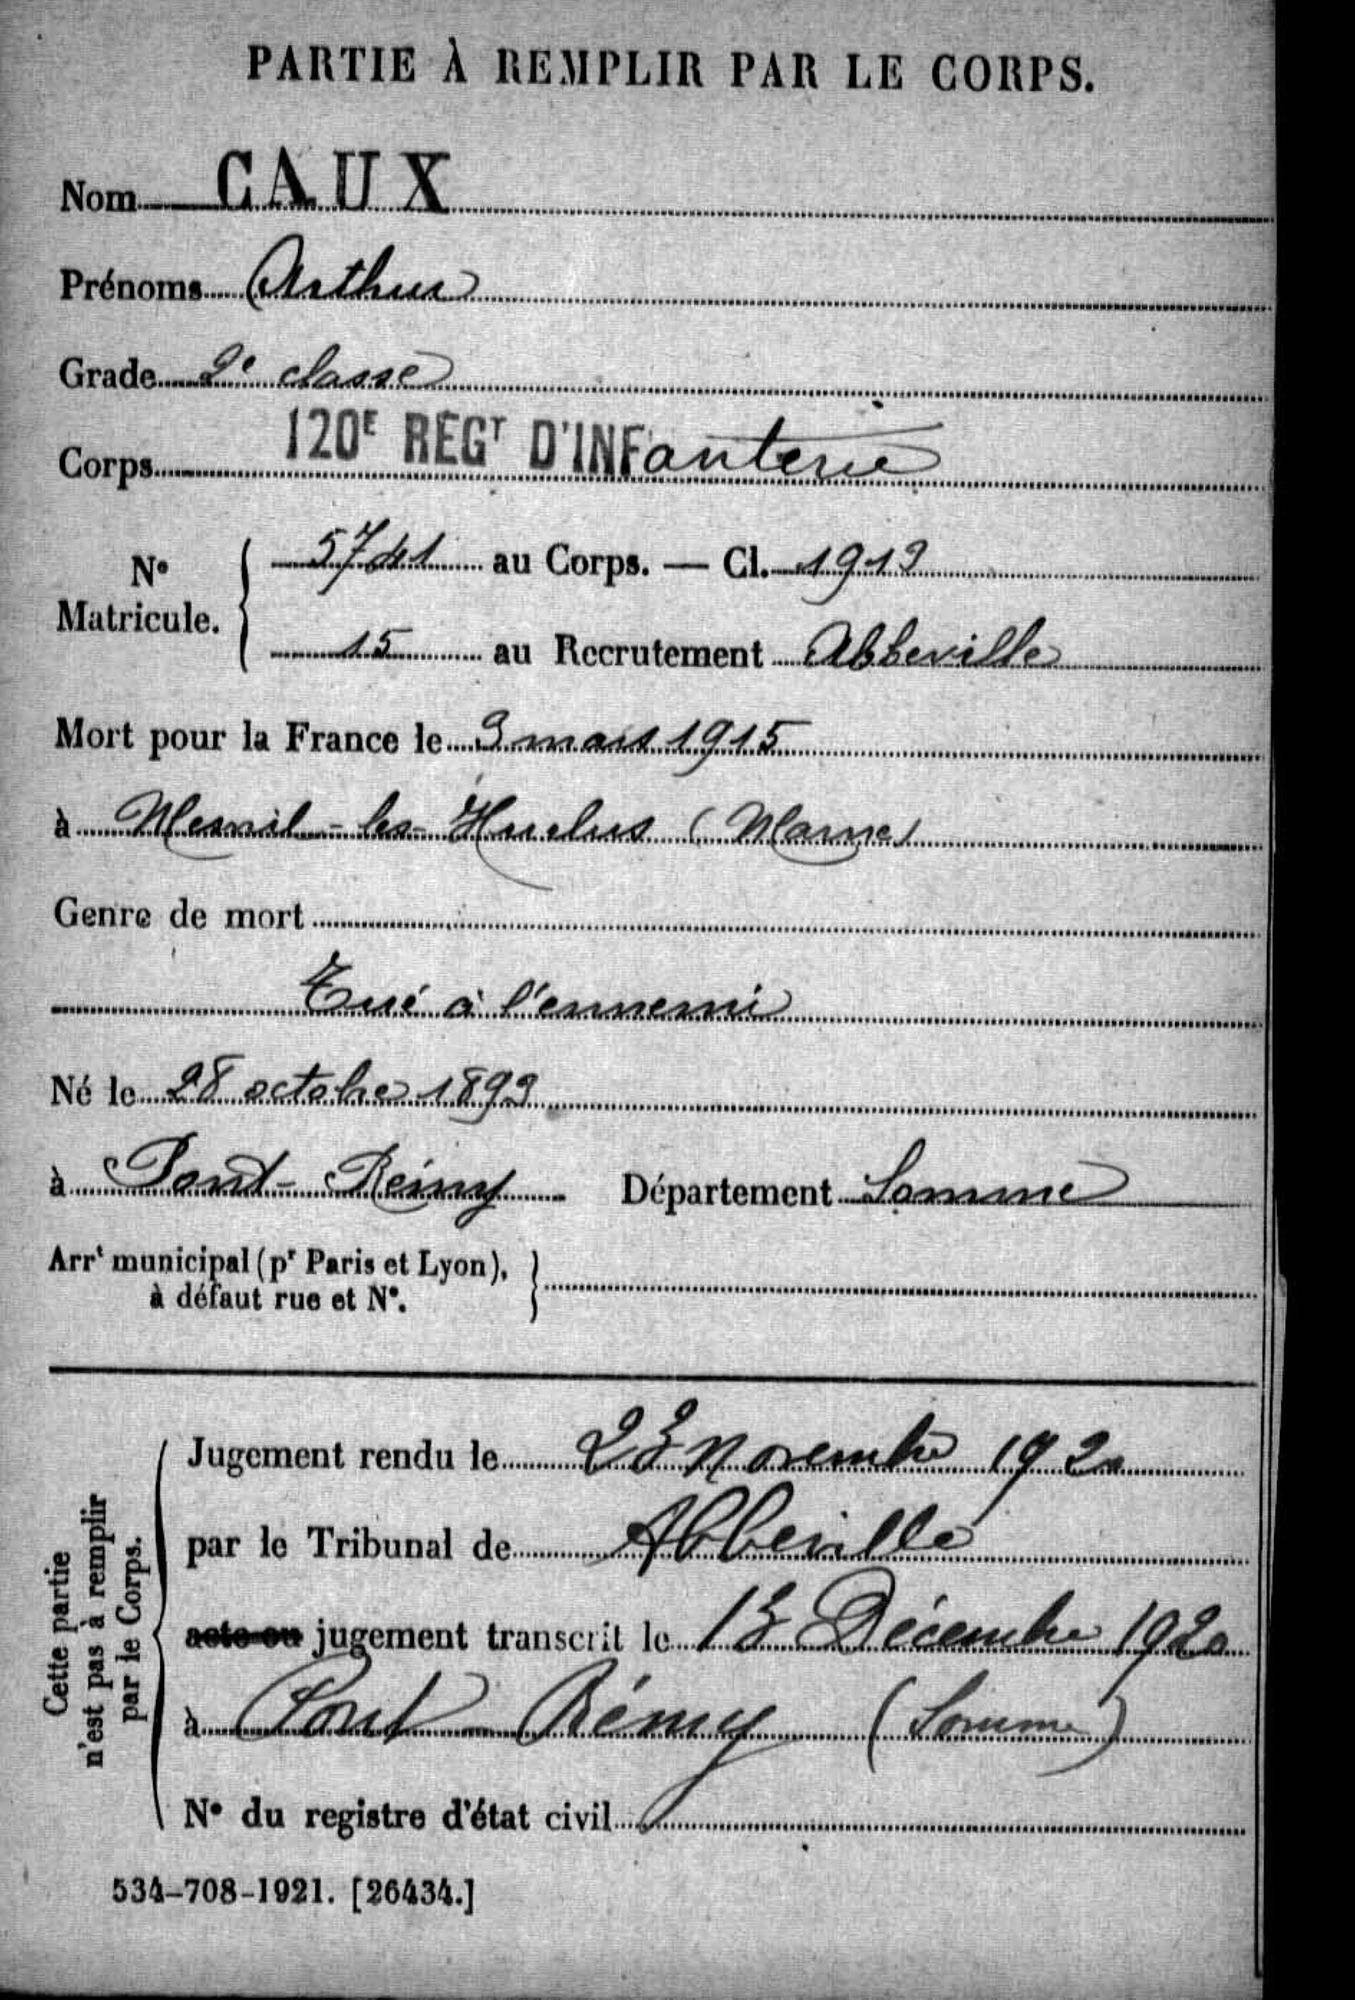 PARTIE À REMPLIR PAR LE CORPS.
Nom CAUX
Prénoms Arthur
Grade 2e classe
Corps 120E REGT D'INFanterie
No Matricule. { 5741 au Corps. — Cl. 1913
15 au Recrutement Abbeville
Mort pour la France le 3 mars 1915
à Mesnil-les-Hurlus (Marne)
Genre de mort
Tué à l'ennemi
Né le 28 octobre 1893
à Pont-Rémy Département Somme
Arrt municipal (pr Paris et Lyon),
à défaut rue et No. }
Cette partie
n'est pas à remplir
par le Corps.
Jugement rendu le 23 novembre 1920
par le Tribunal de Abbeville
acte ou jugement transcrit le 13 Décembre 1920
à Pont Rémy (Somme)
No du registre d'état civil
534-708-1921. [26434.]